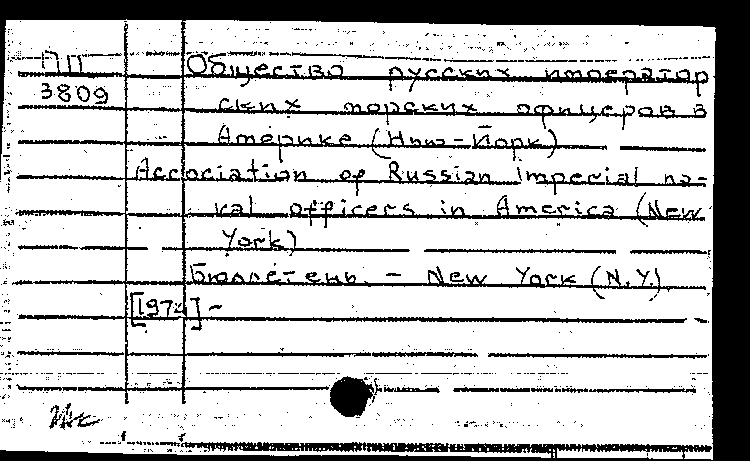 ПП Общество русских император
3809 ских морских офицеров в
Америке (Нью-Йорк)
Accociation of Russian Imperial na-
val officers in America (New
York)
Бюллетень. - New York (N.Y.)